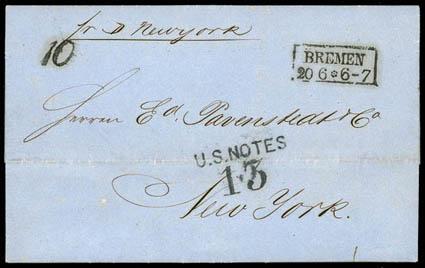 pr D Newyork
10
BREMEN
20 6 * 6-7
Herren Ed. Pavenstedt & Co
U.S. NOTES
13
New York.